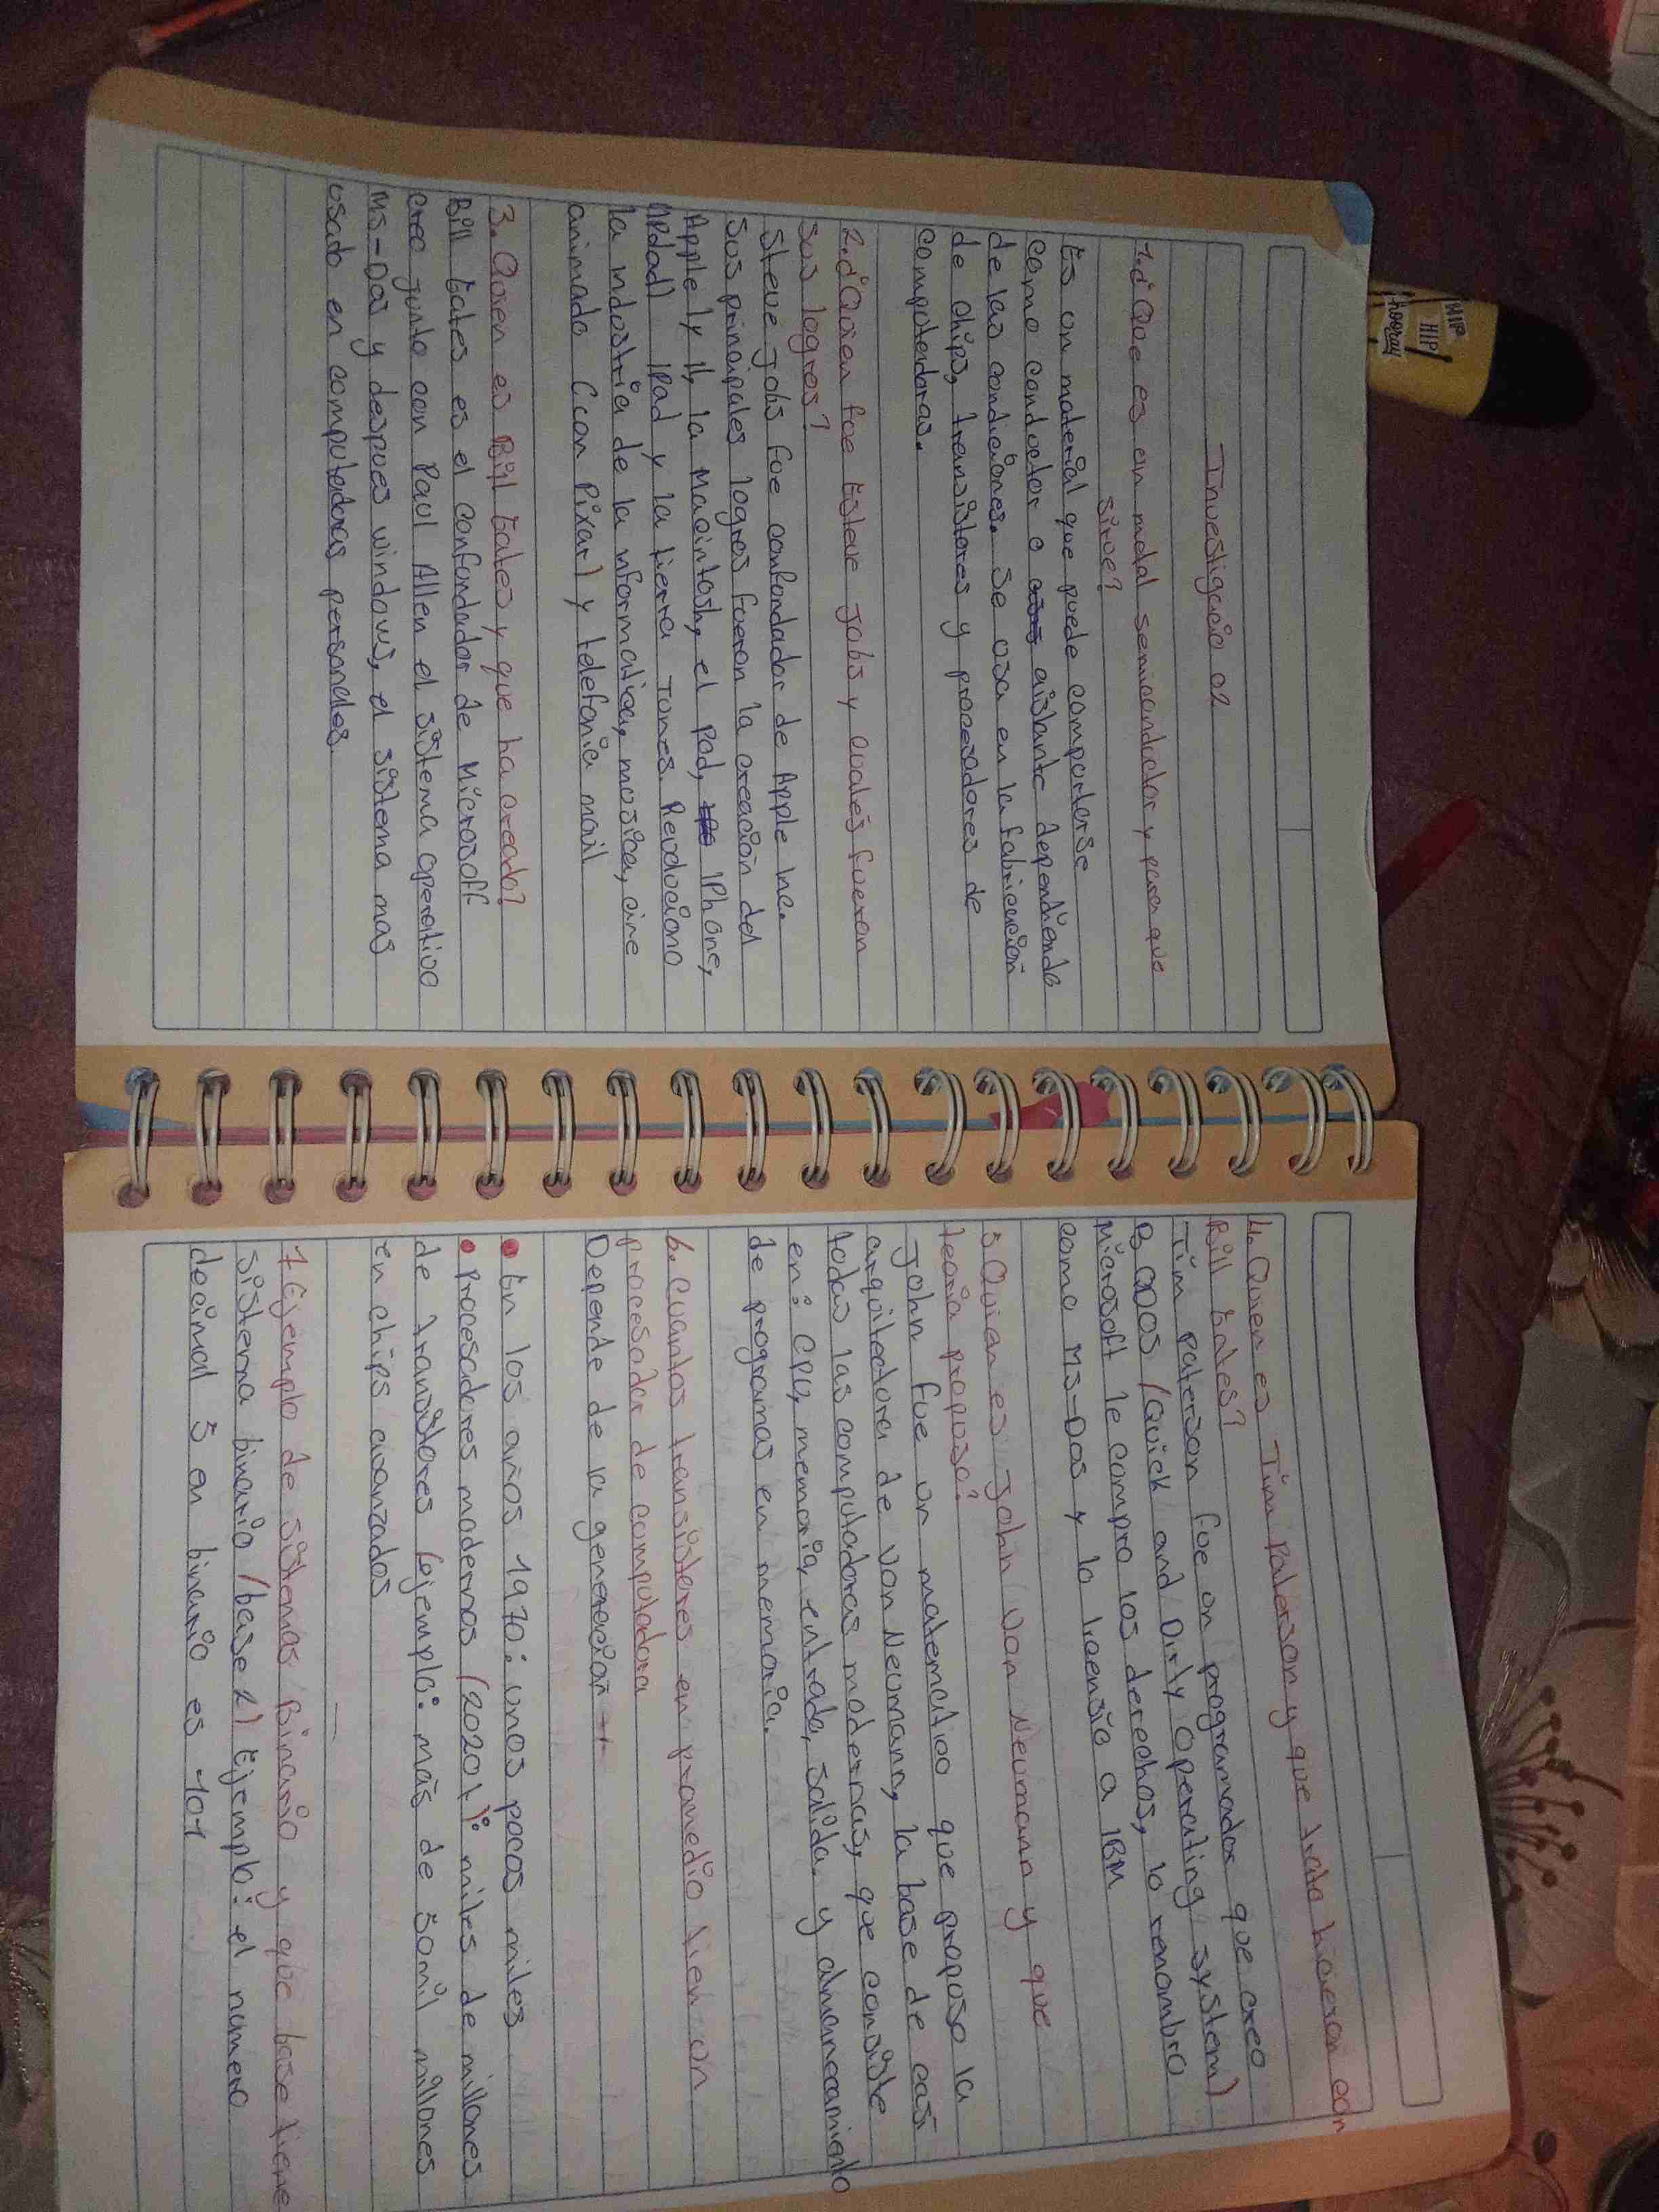 Investigacio 02
1.¿Que es un metal semiconductor y para que
sirve?
Es un material que puede comporterse
como conductor o aislante dependiendo
de las condiciones. Se usa en la fabricación
de chips, transistores y procesadores de
computadoras.
2.¿Quien fue Esteve Jobs y cuales fueron
sus logros?
Steve Jobs fue confundador de Apple Inc.
Sus principales logros fueron la creación del
Apple I y II, la Macintosh, el Pod, IPhone,
IPad y la tierra Tunes. Revoluciono
la industria de la informatica, musica, cine
animado (con Pixar) y telefonia movil
3. Quien es Bill Gates y que ha creado?
Bill Gates es el confundador de Microsoft
creo junto con Paul Allen el sistema operativo
MS-DOS y despues windows, el sistema mas
usado en computadoras personales
4. Quien es Tim Paterson y que trato hicieron con
Bill Gates?
Tim paterson fue un programador que creo
QDOS (Quick and Dirty Operating System)
Microsoft le compro los derechos, lo renombro
como MS-DOS y lo licensio a IBM
5. Quian es John Von Neumann y que
teoria propuso?
John fue un matematico que propuso la
arquitectura de Von Neumann, la base de casi
todas las computadoras modernas, que consiste
en: CPU, memoria, entrada, salida y almanecamiento
de programas en memoria.
6. Cuantos transistores en promedio tien un
procesador de computadora
Depende de la generacion
• En los años 1970: unos pocos miles
• Procesadores modernos (2020): miles de millones
de transistores (ejemplo: más de 50mil millones
en chips avanzados
7 Ejemplo de sistemas Binario y que base tiene
sistema binario (base 2) Ejemplo: el numero
decimal 5 en binario es 101
HIP
HIP
hooray